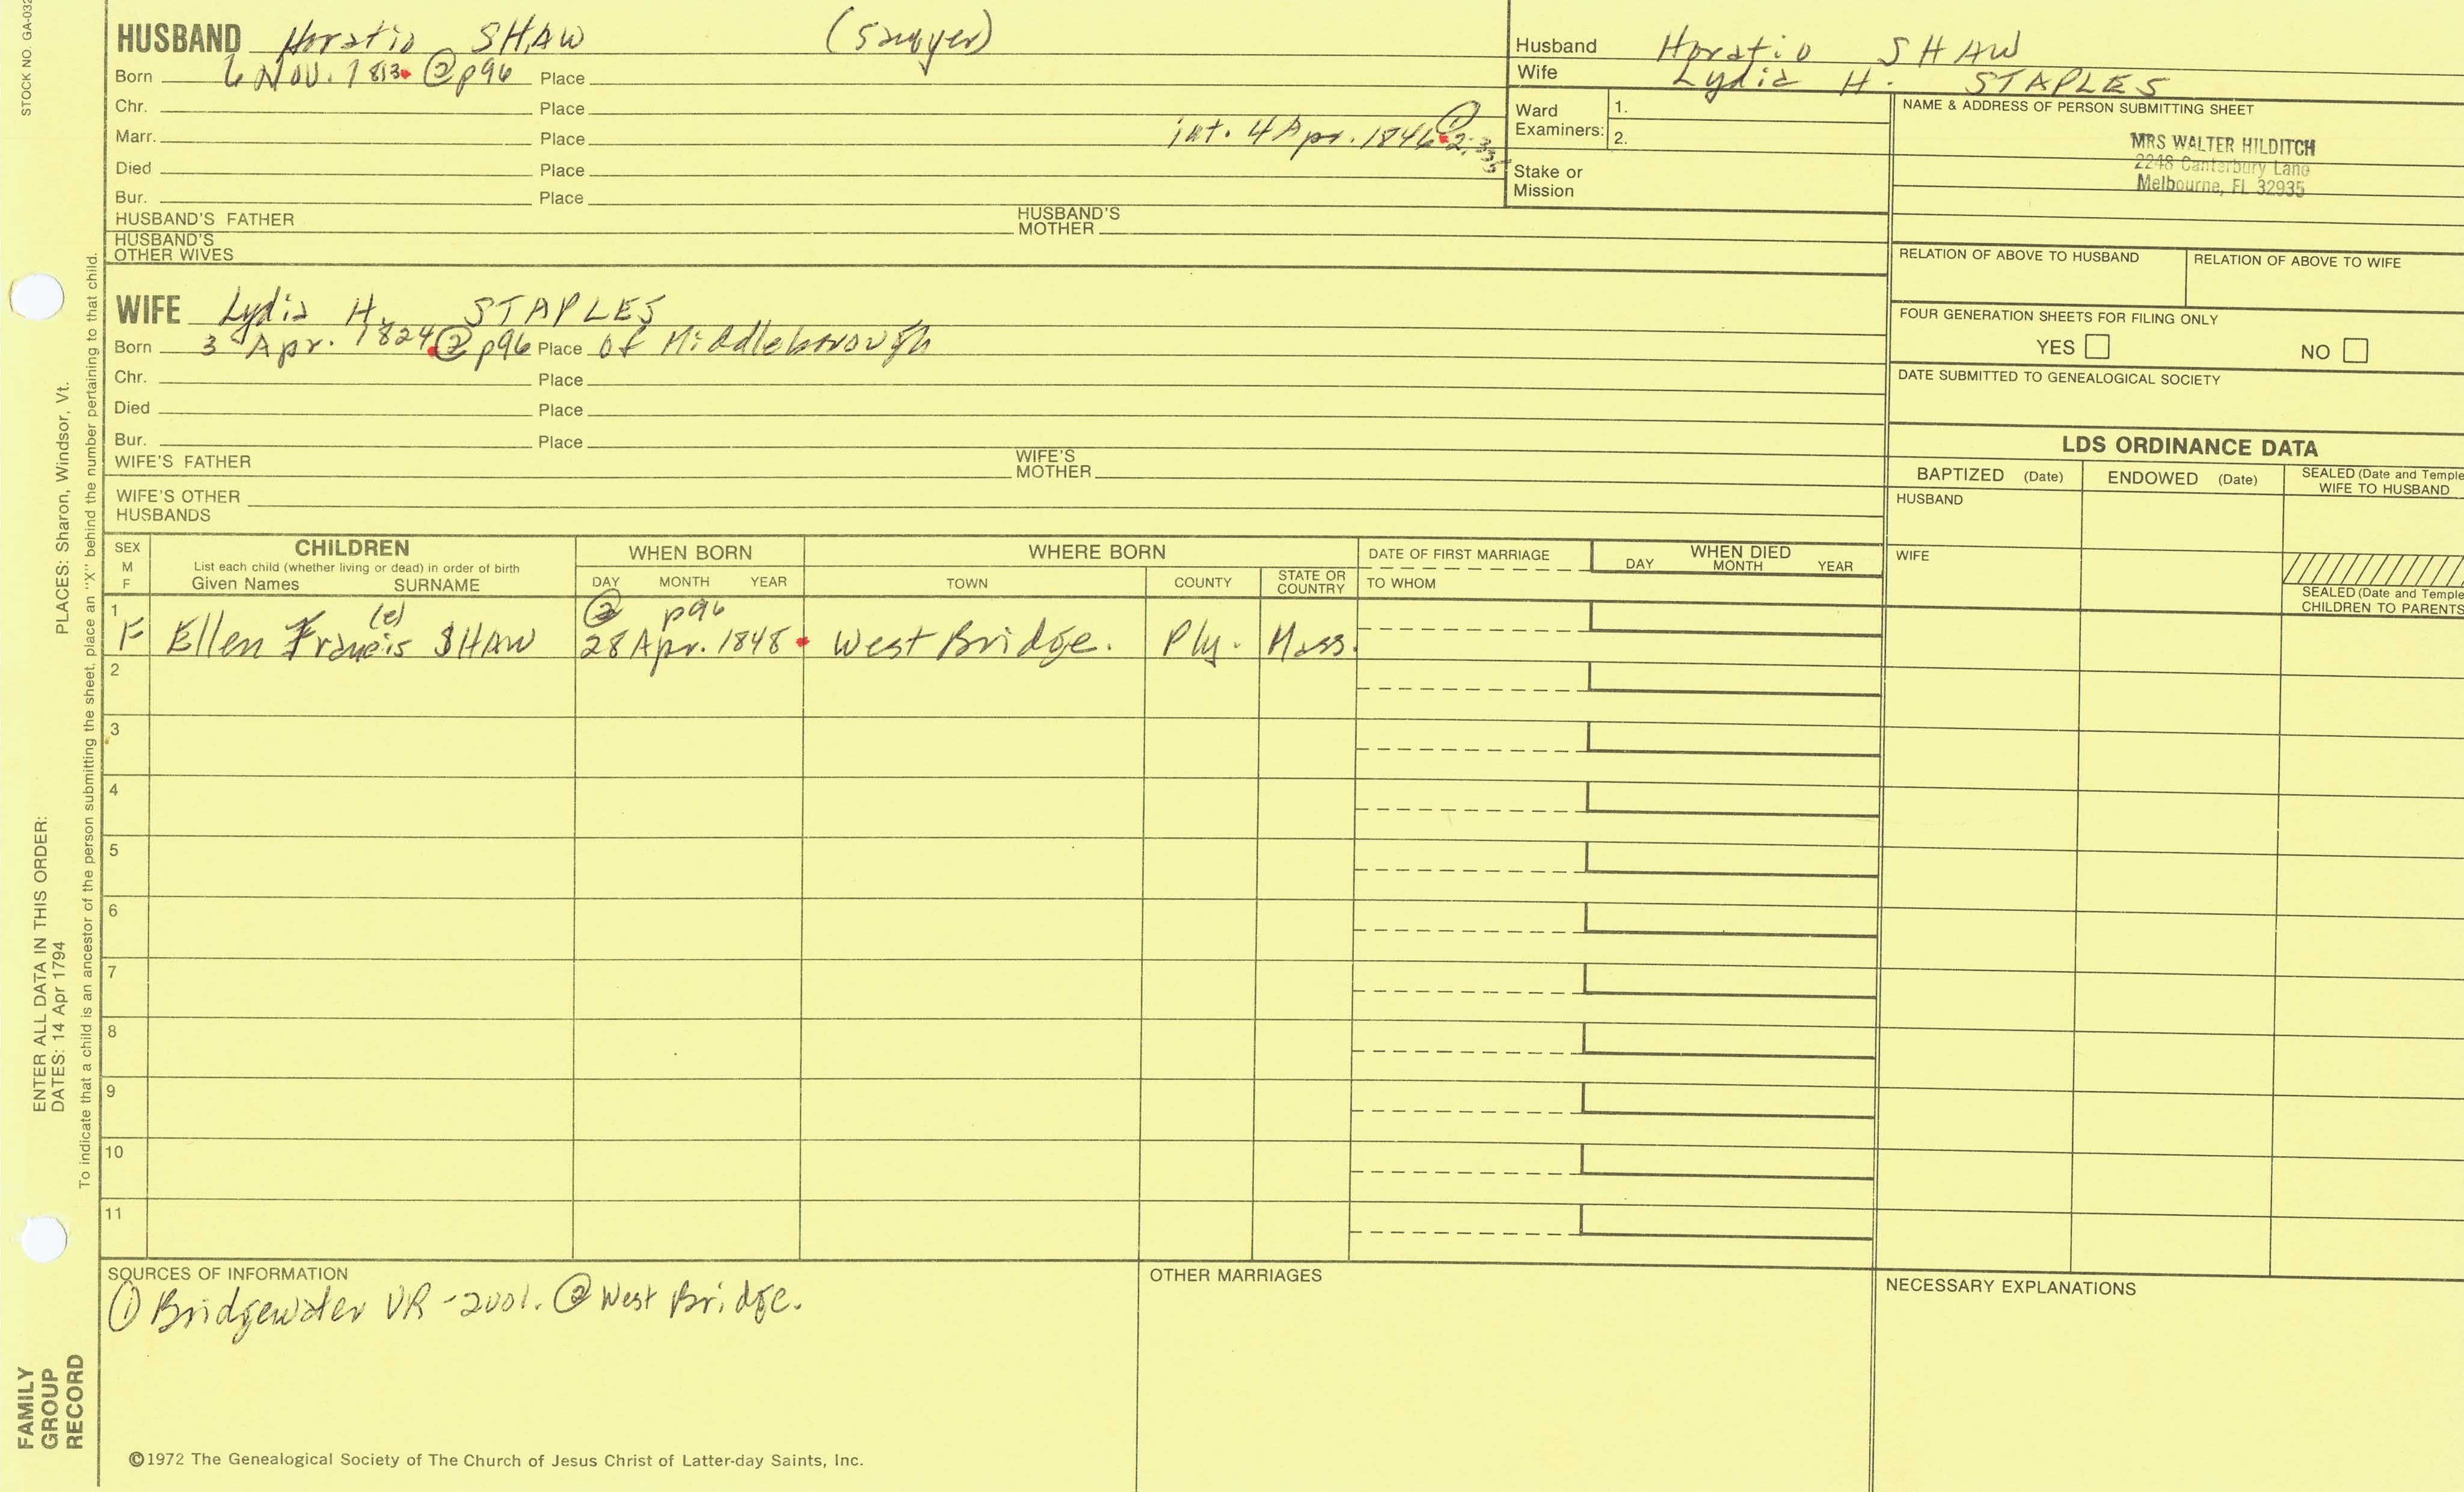 STOCK NO. GA-032
HUSBAND Horatio SHAW (Sawyer)
Born 6 Nov. 1813 ② p96 Place
Chr. Place
Marr. Place int. 4 Apr. 1846 ① 2:335
Died Place
Bur. Place
HUSBAND'S FATHER HUSBAND'S MOTHER
HUSBAND'S OTHER WIVES
Husband Horatio SHAW
Wife Lydia H. STAPLES
Ward Examiners: 1.
2.
Stake or Mission
NAME & ADDRESS OF PERSON SUBMITTING SHEET
MRS WALTER HILDITCH
2248 Canterbury Lane
Melbourne, FL 32935
RELATION OF ABOVE TO HUSBAND RELATION OF ABOVE TO WIFE
FOUR GENERATION SHEETS FOR FILING ONLY
YES NO
DATE SUBMITTED TO GENEALOGICAL SOCIETY
WIFE Lydia H. STAPLES
Born 3 Apr. 1824 ② p96 Place of Middleborough
Chr. Place
Died Place
Bur. Place
WIFE'S FATHER WIFE'S MOTHER
WIFE'S OTHER HUSBANDS
LDS ORDINANCE DATA
BAPTIZED (Date) ENDOWED (Date) SEALED (Date and Temple
WIFE TO HUSBAND
HUSBAND
WIFE
SEALED (Date and Temple
CHILDREN TO PARENTS
SEX
M
F
CHILDREN
List each child (whether living or dead) in order of birth
Given Names SURNAME
WHEN BORN
DAY MONTH YEAR
WHERE BORN
TOWN COUNTY STATE OR COUNTRY
DATE OF FIRST MARRIAGE
TO WHOM
WHEN DIED
DAY MONTH YEAR
1 (e) ② p96
F Ellen Francis SHAW 28 Apr. 1848 West Bridge. Ply. Mass.
2
3
4
5
6
7
8
9
10
11
SOURCES OF INFORMATION
① Bridgewater VR - 2vol. ② West Bridge.
OTHER MARRIAGES
NECESSARY EXPLANATIONS
©1972 The Genealogical Society of The Church of Jesus Christ of Latter-day Saints, Inc.
ENTER ALL DATA IN THIS ORDER:
DATES: 14 Apr 1794 PLACES: Sharon, Windsor, Vt.
To indicate that a child is an ancestor of the person submitting the sheet, place an "X" behind the number pertaining to that child.
FAMILY
GROUP
RECORD